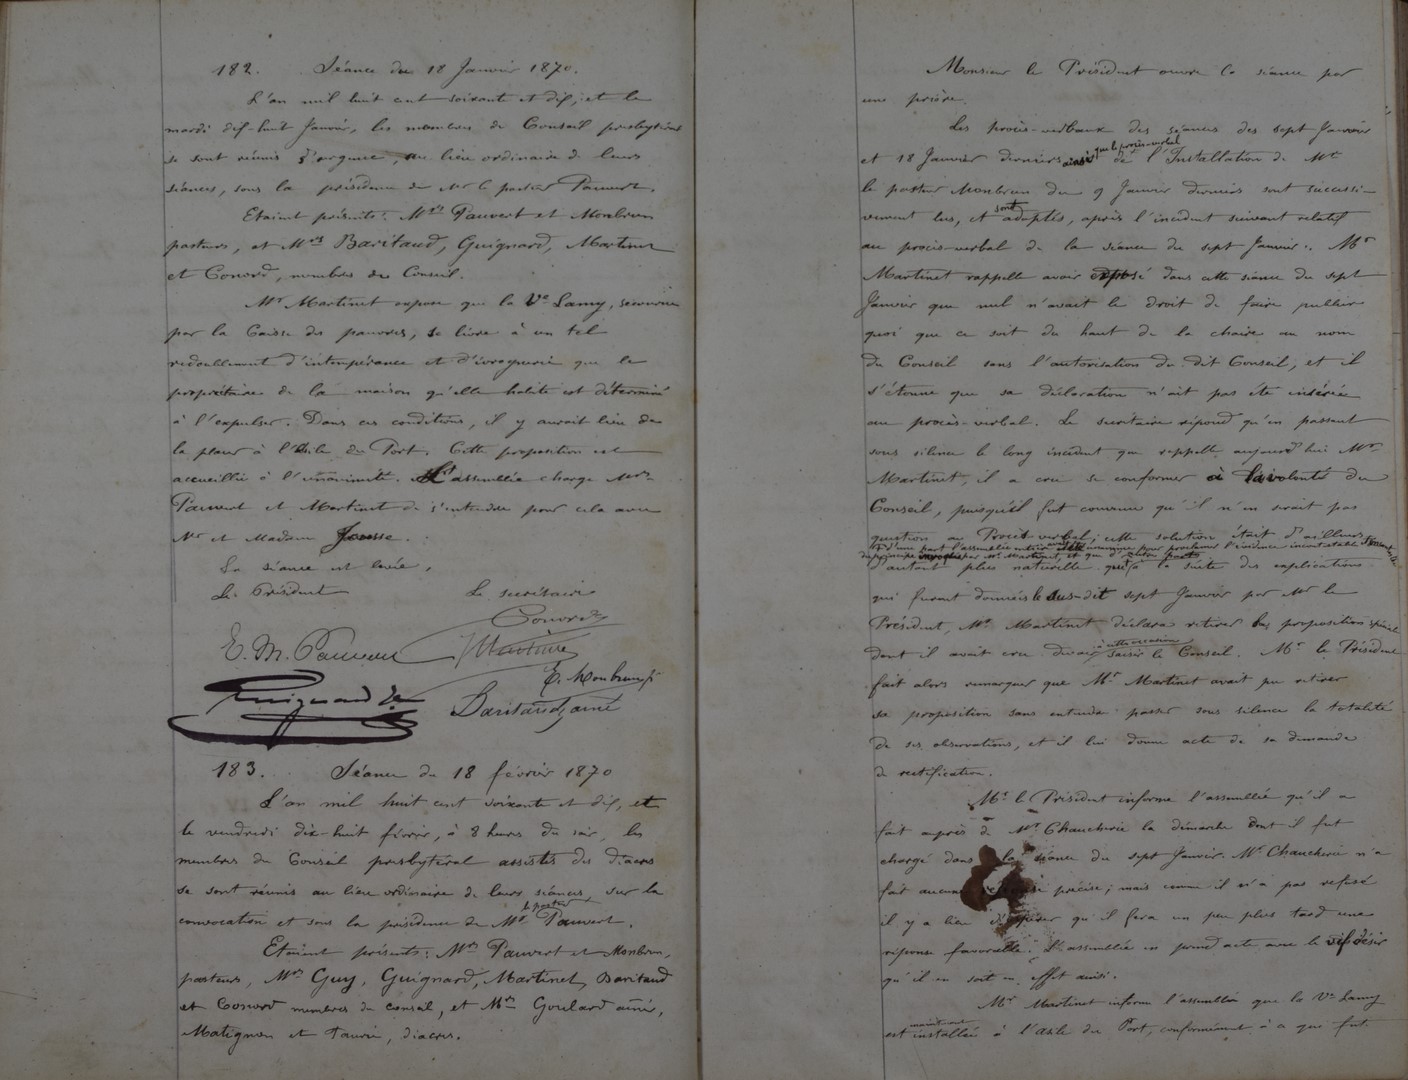 182. Séance du 18 Janvier 1870.
L'an mil huit cent soixante et dix, et le
mardi dix-huit Janvier, les membres du Conseil presbytéral
se sont réunis d'urgence, au lieu ordinaire de leurs
séances, sous la présidence de Mr le pasteur Pauvert.
Etaient présents: Mrs Pauvert et Monbrun
pasteurs, et Mrs Baritaud, Guignard, Martinet
et Conord, membres du Conseil.
Mr Martinet expose que la Ve Lamy, secourue
par la Caisse des pauvres, se livre à un tel
redoublement d'intempérance et d'ivrognerie que le
propriétaire de la maison qu'elle habite est déterminé
à l'expulser. Dans ces conditions, il y aurait lieu de
la placer à l'Asile du Port. Cette proposition est
accueillie à l'unanimité. L'assemblée charge Mrs
Pauvert et Martinet de s'entendre pour cela avec
Mr et Madame Jousse.
La séance est levée.
Le Président Le secrétaire
Conord
E. M. Pauvert JMartinet
E. Monbrun p.
Guignard Baritaud, ainé
183. Séance du 18 février 1870
L'an mil huit cent soixante et dix, et
le vendredi dix-huit février, à 8 heures du soir, les
membres du Conseil presbytéral assistés des diacres
se sont réunis au lieu ordinaire de leurs séances, sur la
le pasteur
convocation et sous la présidence de Mr Pauvert.
Etaient présents: Mrs Pauvert et Monbrun,
pasteurs, Mrs Guy, Guignard, Martinet, Baritaud
et Conord membres du conseil, et Mrs Goulard ainé,
Matignon et Taurin, diacres.
Monsieur le Président ouvre la séance par
une prière.
Les procès-verbaux des séances des sept Janvier
que le procès-verbal
et 18 Janvier derniers ainsi de l'Installation de Mr
le pasteur Monbrun du 9 Janvier derniers sont successi-
sont
vement lus, et adoptés, après l'incident suivant relatif
au procès-verbal de la séance du sept Janvier: Mr
Martinet rappelle avoir exposé dans cette séance du sept
Janvier que nul n'avait le droit de faire publier
quoi que ce soit du haut de la chaire au nom
du Conseil sans l'autorisation du dit Conseil, et il
s'étonne que sa déclaration n'ait pas été insérée
au procès-verbal. Le secrétaire répond qu'en passant
sous silence le long incident que rappelle aujourd'hui Mr
Martinet, il a cru se conformer à la volonté du
Conseil, puisqu'il fut convenu qu'il n'en serait pas
question au Procès verbal; cette solution était d'ailleurs
d'une part l'assemblée unanime pour proclamer l'évidence incontestable
du principe par Mr Martinet et que d'autre part
d'autant plus naturelle qu'à la suite des explications
qui furent données le sus-dit sept Janvier par Mr le
Président, Mr Martinet déclara retirer les proposition spéciale
à cette occasion
dont il avait cru devoir saisir le Conseil. Mr le Président
fait alors remarquer que Mr Martinet avait pu retirer
sa proposition sans entendre passer sous silence la totalité
de ses observations, et il lui donne acte de sa demande
de rectification.
Mr le Président informe l'assemblée qu'il a
fait auprès de Mr Chaucherie la démarche dont il fut
chargé dans la séance du sept Janvier. Mr Chaucherie n'a
fait aucune réponse précise; mais comme il n'a pas refusé
il y a lieu d'espérer qu'il fera un peu plus tard une
réponse favorable. L'assemblée en prend acte avec le vif désir
qu'il en soit en effet ainsi.
Mr Martinet informe l'assemblée que la Ve Lamy
maintenant
est installée à l'Asile du Port, conformément à ce que fut